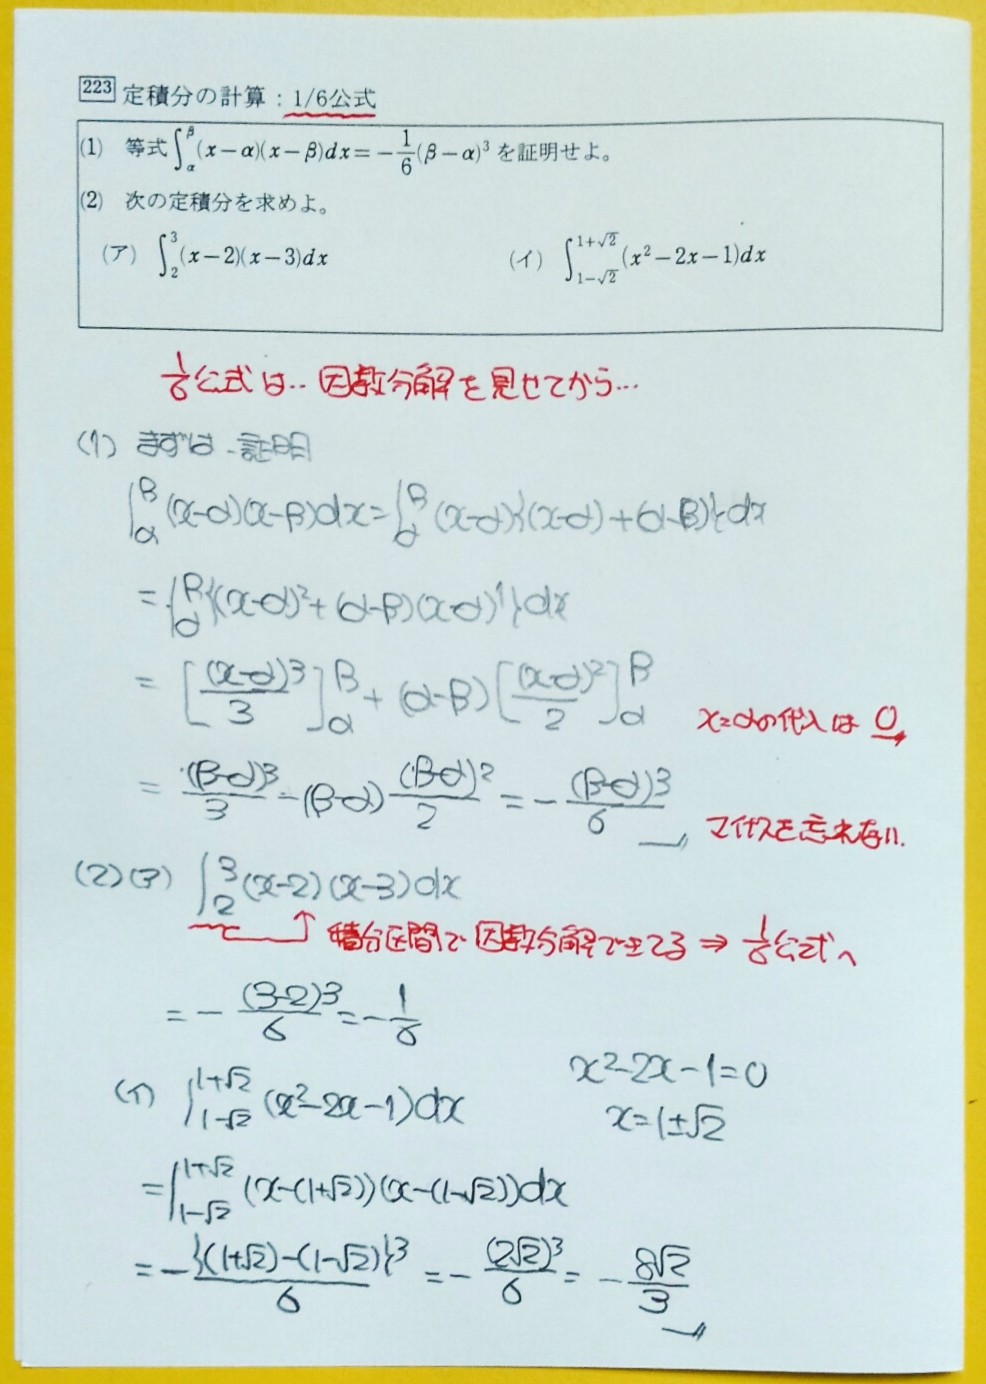 223 定積分の計算：1/6公式
(1) 等式∫_α^β(x−α)(x−β)dx=−1/6(β−α)³を証明せよ。
(2) 次の定積分を求めよ。
(ア) ∫_2^3(x−2)(x−3)dx (イ) ∫_{1−√2}^{1+√2}(x²−2x−1)dx
1/6公式は‥因数分解を見せてから…
(1) まずは証明
∫_α^β(x-α)(x-β)dx=∫_α^β(x-α){(x-α)+(α-β)}dx
=∫_α^β{(x-α)²+(α-β)(x-α)¹}dx
=[(x-α)³/3]_α^β+(α-β)[(x-α)²/2]_α^β
x=αの代入は0
=(β-α)³/3-(β-α)(β-α)²/2=-(β-α)³/6
マイナスを忘れない.
(2)(ア) ∫_2^3(x-2)(x-3)dx
積分区間で因数分解できてる⇒1/6公式へ
=-(3-2)³/6=-1/6
(イ) ∫_{1-√2}^{1+√2}(x²-2x-1)dx
x²-2x-1=0
x=1±√2
=∫_{1-√2}^{1+√2}(x-(1+√2))(x-(1-√2))dx
=-{(1+√2)-(1-√2)}³/6=-(2√2)³/6=-8√2/3